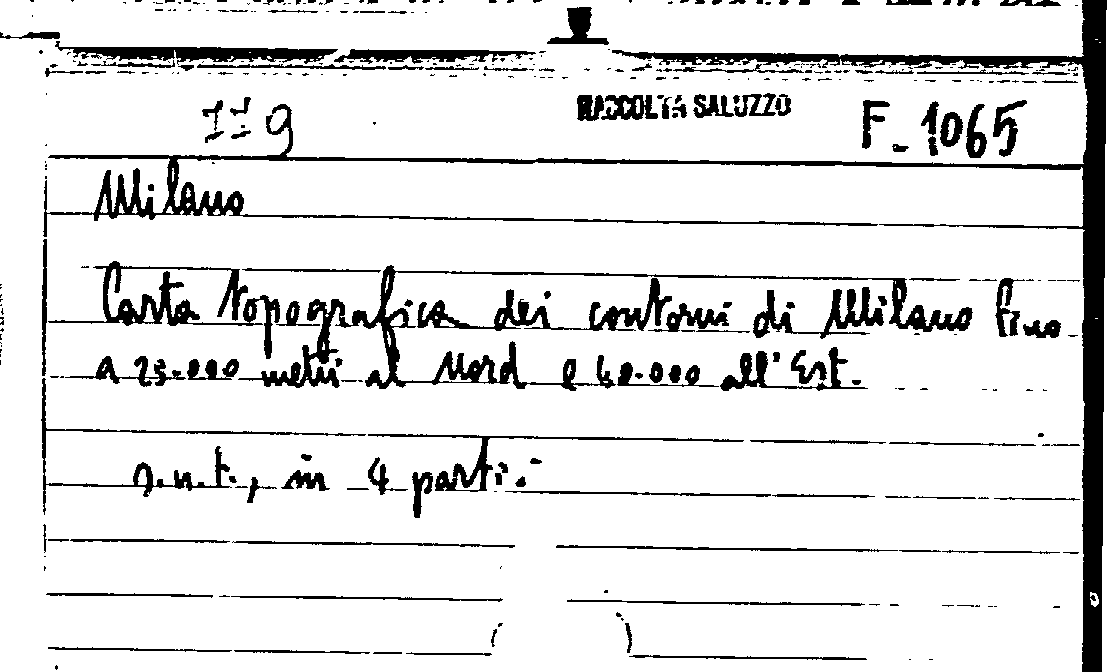 I I 9
RACCOLTA SALUZZO
F_ 1065
Milano
Carta topografica dei contorni di Milano fino
a 25.000 metri al Nord e 40.000 all'Est.
s.n.t., in 4 parti.